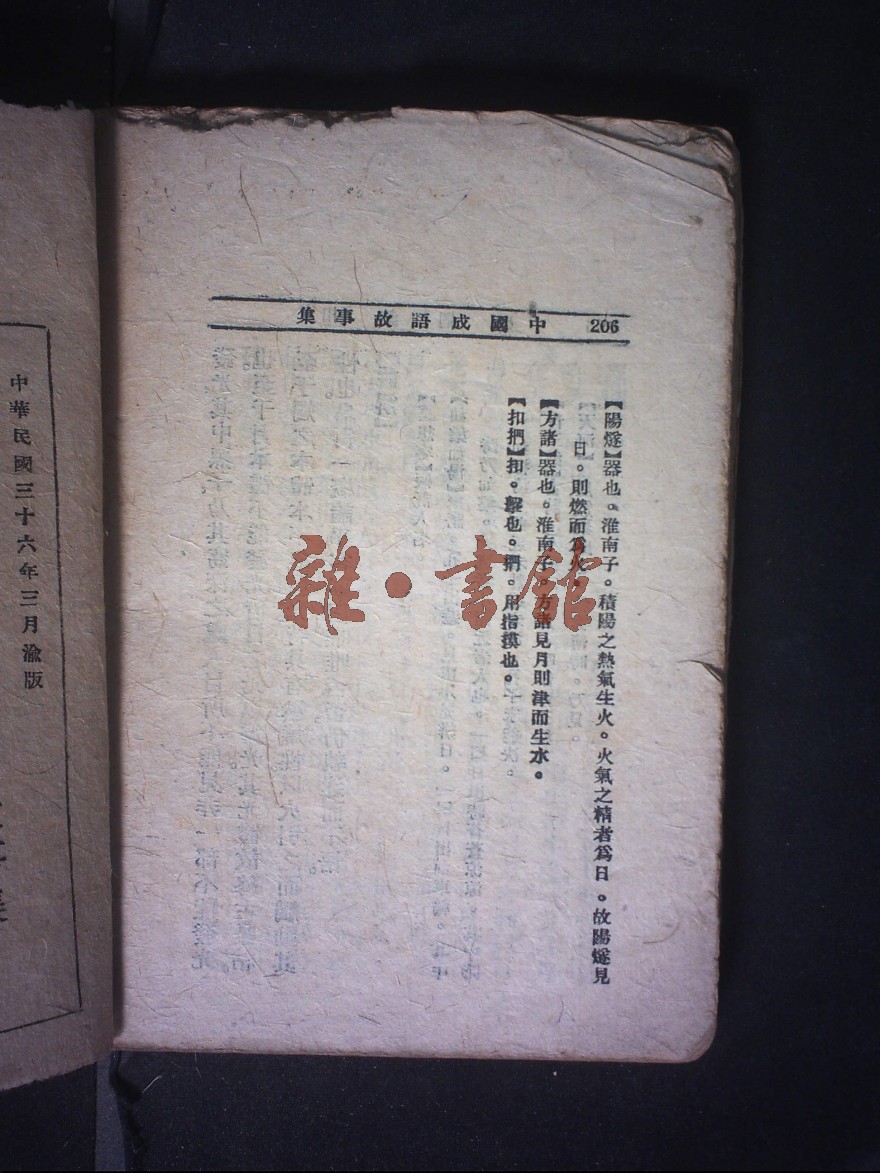 206 中國成語故事集
【陽燧】器也。淮南子。積陽之熱氣生火。火氣之精者爲日。故陽燧見
日。則燃而爲火。
【方諸】器也。淮南子。方諸見月則津而生水。
【扣捫】扣。擊也。捫。用指摸也。
雜·書館
中華民國三十六年三月渝版